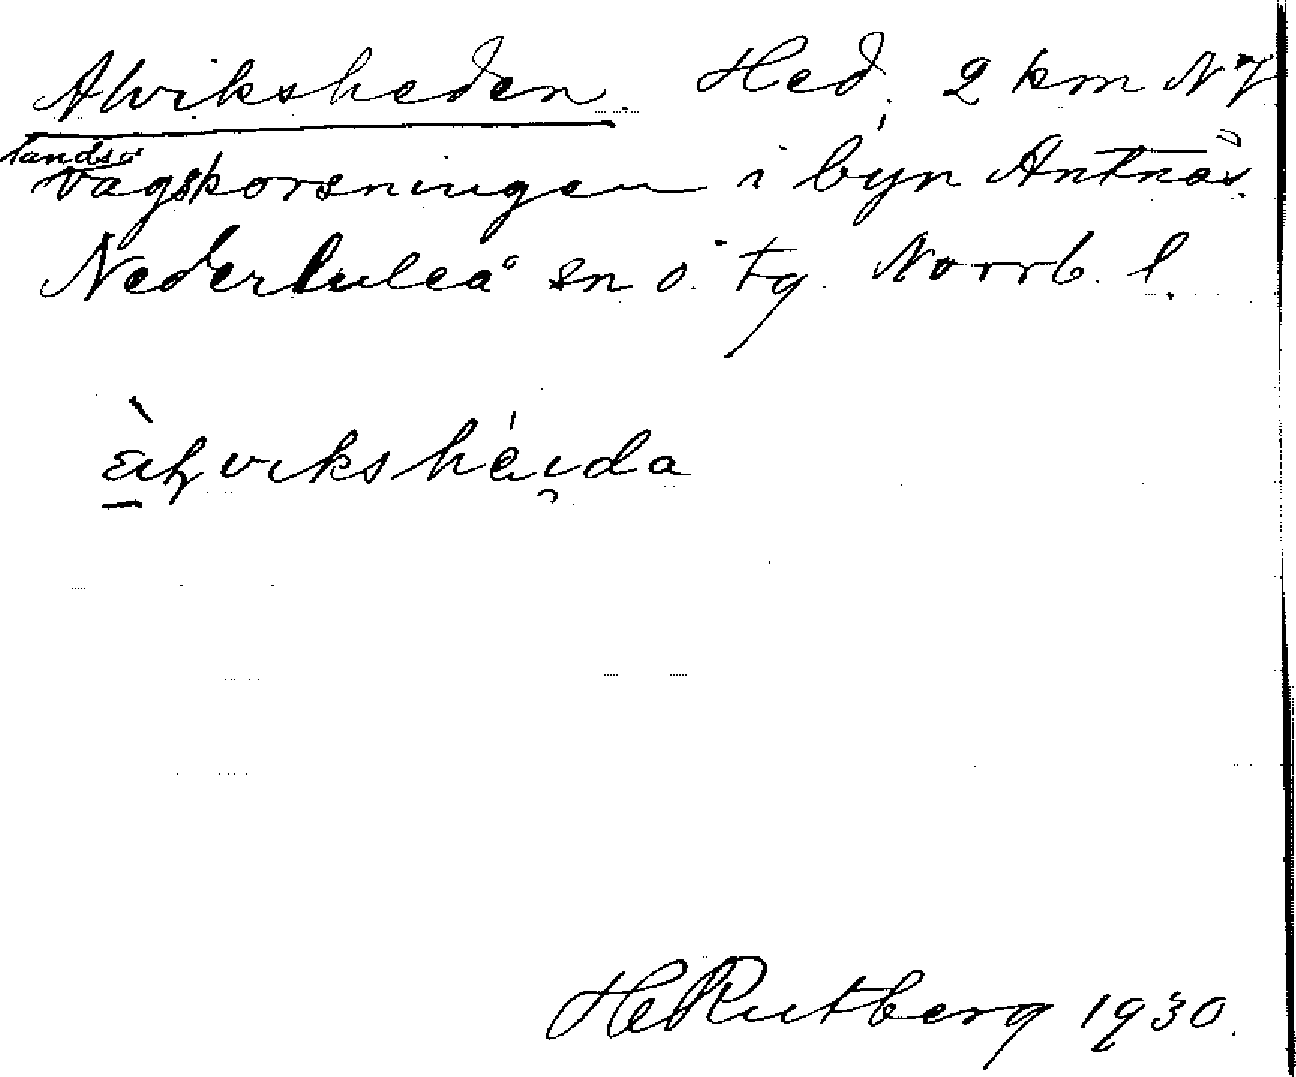 Alviksheden. Hed, 2 km N of
landsvägskorsningen i byn Antnäs.
Nederluleå sn o. tg. Norrb. l.
HERutberg 1930.